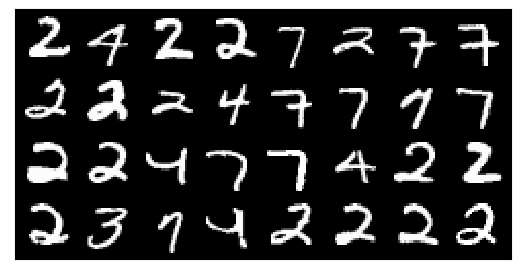 2 4 2 2 7 2 7 7
2 2 2 4 7 7 7 7
2 2 4 7 7 4 2 2
2 3 7 4 2 2 2 2